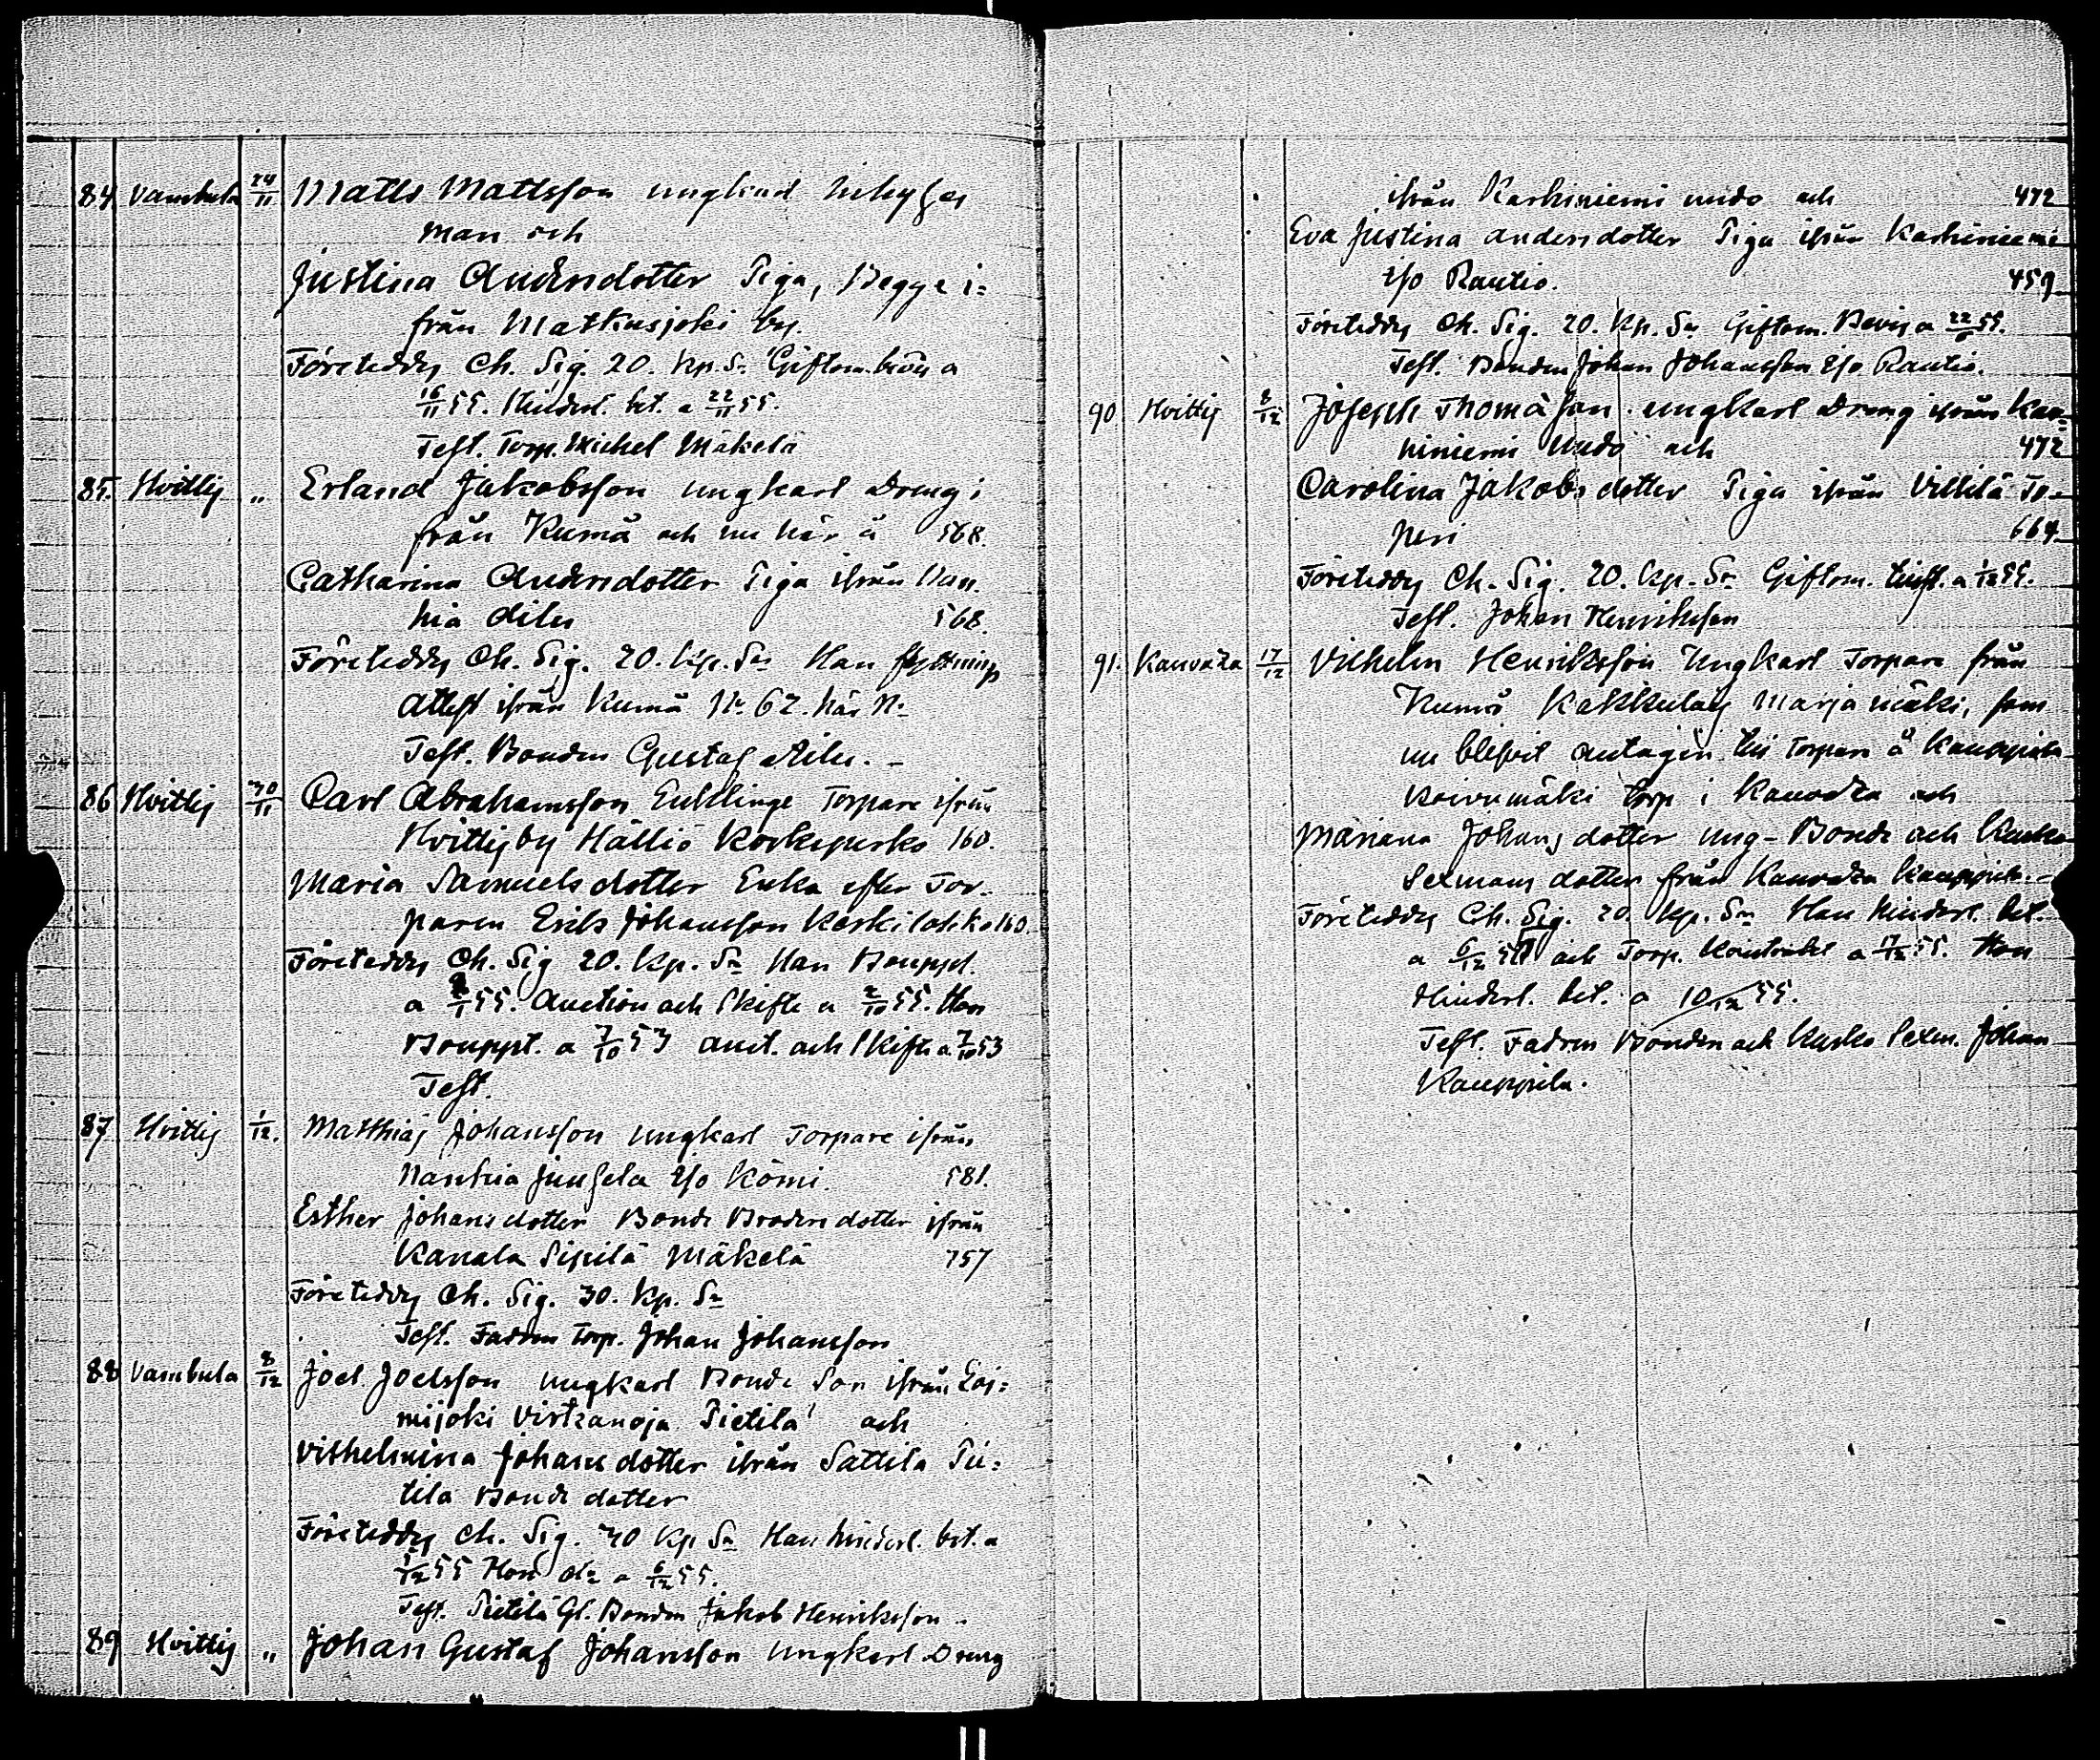 84 Vambula 24/11 Matts Mattsson ungkarl Inhyses
man och
Justina Andersdotter Piga, Begge i=
från Matkusjoki by.
Företeddes Ch. Sig. 20. Kp. Sr Giftom. bevis a
16/11 55. Hinderl. bet. a 22/11 55.
Test. Torp. Michel Mäkelä
85. Hvittis " Erland Jakobsson ungkarl Dreng i
från Kumå och nu här å 568.
Catharina Andersdotter Piga ifrån Nan
hia Ailu 568.
Företeddes Ch. Sig. 20. Kp. Sr Han flyttnings
attest ifrån Kumå No 62. här No
Test. Bonden Gustaf Ailu. –
86 Hvittis 30/11 Carl Abrahamsson Enklinge Torpare ifrån
Hvittisby Hälliö Korkepersko 160.
Maria Samuelsdotter Enka efter Tor-
paren Erik Johansson Koski 160.
Företeddes Ch. Sig 20. Kp. Sr Han Bouppt.
a 55. Auction och Skifte a 2/10 55. Hon
Bouppt. a 7/10 53 auct. och Skifte a 7/10 53
Test.
87 Hvittis 1/12. Matthias Johansson ungkarl Torpare ifrån
Nanhia Junsela t/o Kömi. 581.
Esther Johansdotter Bonde Brodersdotter ifrån
Karala Sipilä Mäkelä 757
Företeddes Ch. Sig. 30. Kp. Sr
Test. Fadren Torp. Johan Johansson
88 Vambula 8/12 Joel Joelsson ungkarl Bonde Son ifrån Loi=
mijoki Virtzanoja Pietilä och
Vilhelmina Johansdotter ifrån Sattila Pie=
tila Bonde dotter
Företeddes Ch. Sig. 30 Kp Sr Han hinderl. bet. a
5/12 55 Hon do a 6/12 55.
Test. Pietilä Gl. Bonden Jakob Henriksson –
89 Hvittis " Johan Gustaf Johansson ungkarl Dreng
ifrån Karhiniemi Uudo och 472
Eva Justina Andersdotter Piga ifrån Karhiniemi
t/o Rautio. 459
Företeddes Ch. Sig. 20. Kp. Sr Giftom. Bevis a 55.
Test. Bonden Johan Johansson t/o Rautio.
90 Hvittis 8/12 Joseph Thomasson ungkarl Dreng ifrån Kar=
hiniemi Uudo och 472
Carolina Jakobsdotter Piga ifrån Villilä To-
peri 664
Företeddes Ch. Sig. 20. Kp. Sr Giftom. tillst. a 1/12 55.
Test. Johan Henriksson
91. Kauvatza 17/12 Vilhelm Henriksson Ungkarl Torpare från
Kumå Kakkulais Marjamäki, som
nu blifvit antagen till Torpare å Kauppila
Koivumäki Torp i Kauvatza och
Mariana Johansdotter ung- Bonde och Kyrko
Sexmans dotter från Kauvatza Kauppila. –
Företeddes Ch. Sig. 20. Kp. Sr Han hinderl. bet.
a 6/12 55 och Torp. Kontrakt a 17/12 55. Hon
Hinderl. bet. a 10/12 55.
Test. Fadren Bonden och Kyrko Sexm. Johan
Kauppila.